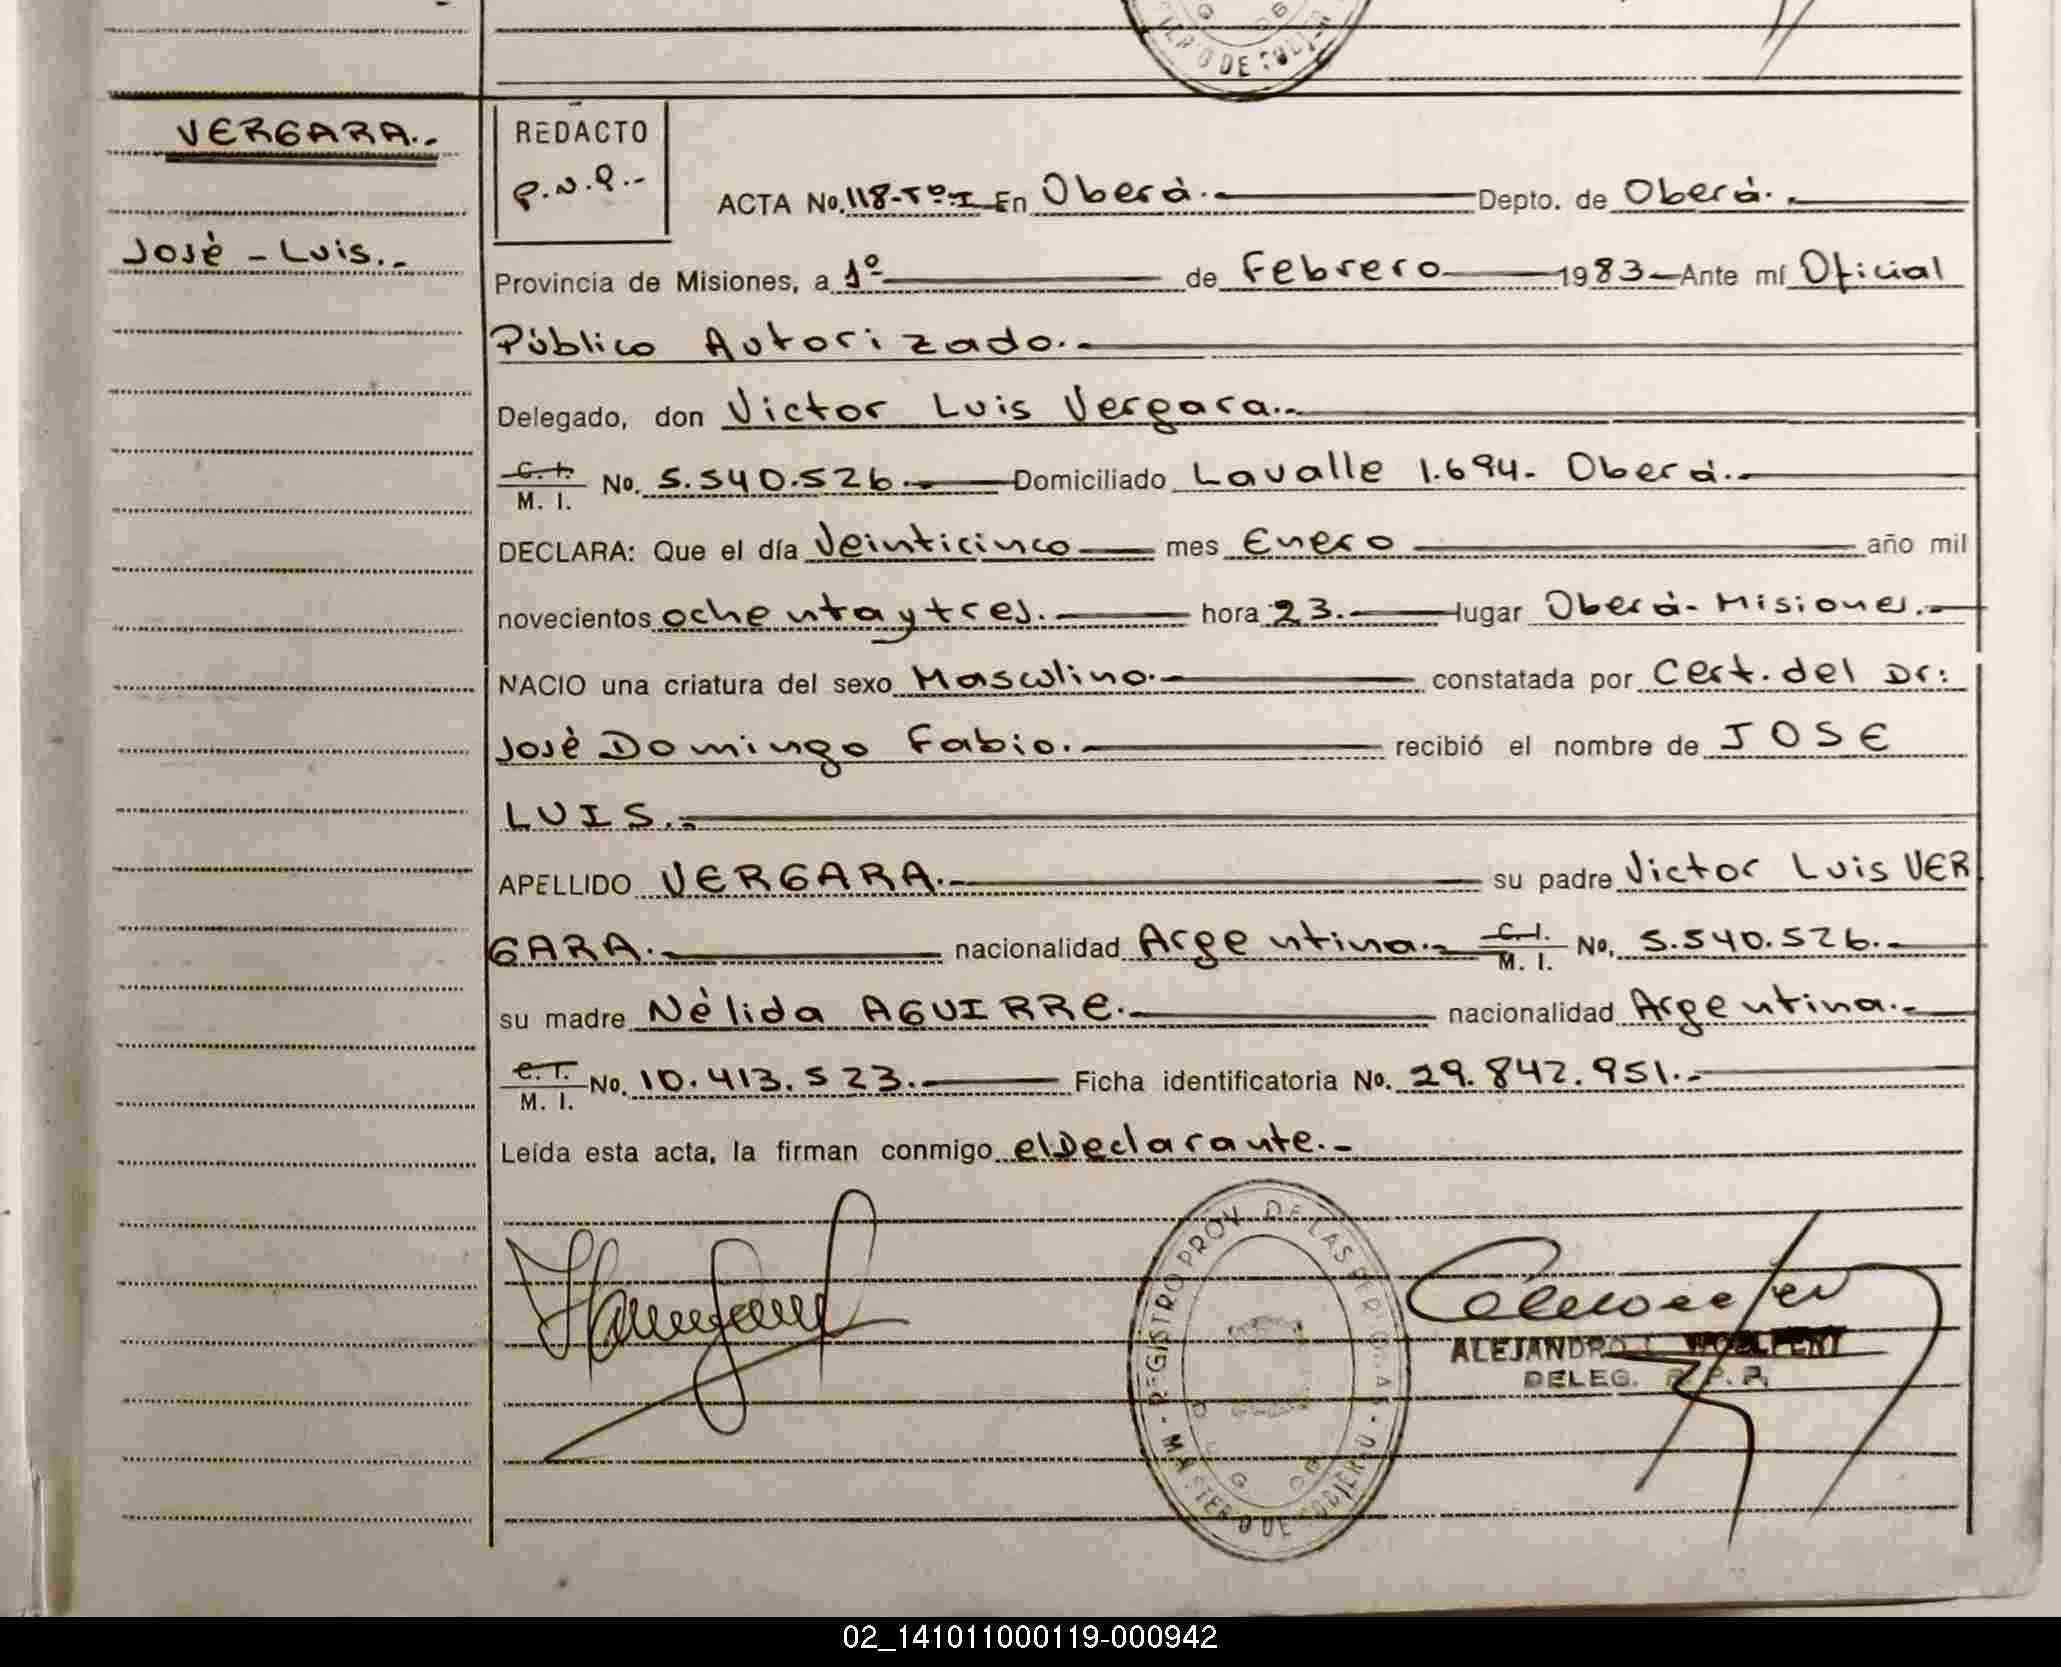 VERGARA.-
José - Luis.-
REDACTO
P.N.P.-
ACTA No. 118-Tº-I En Oberá.- Depto. de Oberá.-
Provincia de Misiones, a 1º de Febrero 1983 Ante mí Oficial
Público Autorizado.-
Delegado, don Victor Luis Vergara.-
C. I.
M. I. No. 5.540.526.- Domiciliado Lavalle 1.694.- Oberá.-
DECLARA: Que el día Veinticinco mes Enero año mil
novecientos ochenta y tres.- hora 23.- lugar Oberá- Misiones.-
NACIO una criatura del sexo Masculino.- constatada por Cert. del Dr:
José Domingo Fabio.- recibió el nombre de JOSE
LUIS.-
APELLIDO VERGARA.- su padre Victor Luis VER
GARA.- nacionalidad Argentina.- C. I. M. I. No. 5.540.526.-
su madre Nélida AGUIRRE.- nacionalidad Argentina.-
C. I.
M. I. No. 10.413.523.- Ficha identificatoria No. 29.842.951.-
Leída esta acta, la firman conmigo el Declarante.-
REGISTRO PROV. DE LAS PERSONAS - MINISTERIO DE GOBIERNO
ALEJANDRO
DELEG. R. P. P.
02_141011000119-000942